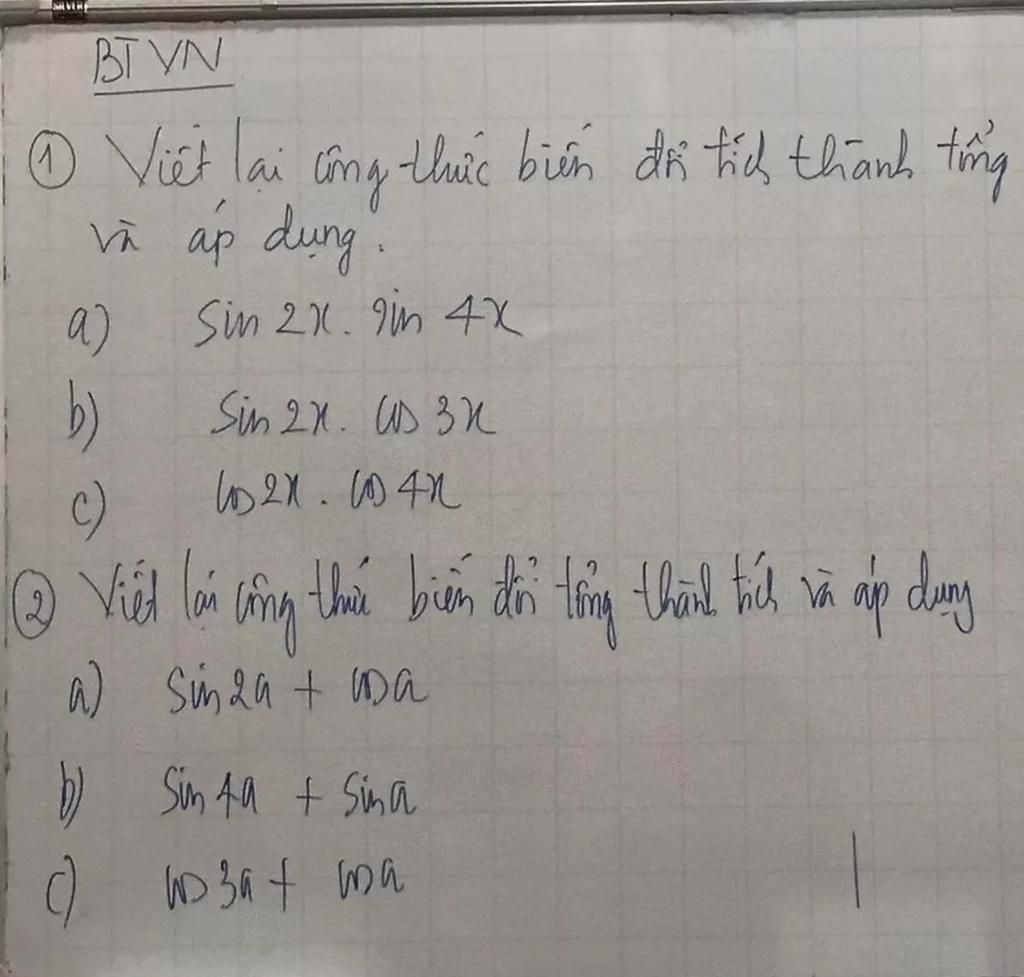 SILVER
BTVN
① Viết lại công thức biến đổi tích thành tổng
và áp dụng.
a) sin 2x. sin 4x
b) sin 2x. cos 3x
c) cos 2x. cos 4x
② Viết lại công thức biến đổi tổng thành tích và áp dụng
a) sin 2a + cos a
b) sin 4a + sin a
c) cos 3a + cos a